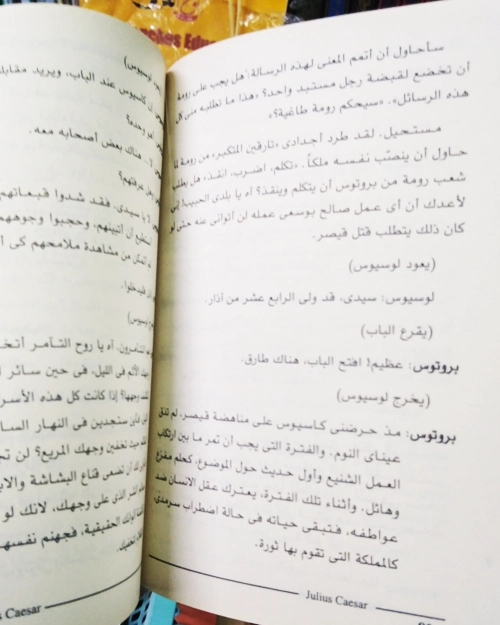 سأحاول أن أتمم المعنى لهذه الرسالة: هل يجب على رومة
أن تخضع لقبضة رجل مستبد واحد؟ «هذا ما تطلبه منى كل
هذه الرسائل». «سيحكم رومة طاغية؟»
مستحيل. لقد طرد أجدادى «تارقين المتكبر» من رومة لما
حاول أن ينصّب نفسه ملكاً. «تكلم، اضرب، انقذ». هل يطلب
شعب رومة من بروتوس أن يتكلم وينقذ؟ آه يا بلدى الحبيب! إنى
لأعدك أن أى عمل صالح بوسعى عمله لن أتوانى عنه حتى لو
كان ذلك يتطلب قتل قيصر.
(يعود لوسيوس)
لوسيوس: سيدى، قد ولى الرابع عشر من آذار.
(يقرع الباب)
بروتوس: عظيم! افتح الباب، هناك طارق.
(يخرج لوسيوس)
بروتوس: مذ حرضنى كاسيوس على مناهضة قيصر، لم تذق
عيناى النوم. والفترة التى يجب أن تمر ما بين ارتكاب
العمل الشنيع وأول حديث حول الموضوع، كحلم مفزع
وهائل. وأثناء تلك الفترة، يعترك عقل الانسان ضد
عواطفه، فتبقى حياته فى حالة اضطراب سرمدى
كالمملكة التى تقوم بها ثورة.
Julius Caesar
لوسيوس)
كاسيوس عند الباب، ويريد مقابلة
وحده؟
لا.. هناك بعض أصحابه معه.
عرفتهم؟
لا يا سيدى. فقد شدوا قبعاتهم
أستطيع أن أتبينهم، وحجبوا وجوههم
أتمكن من مشاهدة ملامحهم كى
فليدخلوا.
المتآمرون. آه يا روح التآمر
فى الليل، فى حين سائر
وجهها؟ إذا كانت كل هذه
ستجدين فى النهار
تخفين وجهك المريع؟ لن
أن تضعى قناع البشاشة
الشر الذى على وجهك، لانك لو
الحقيقية، فجهنم نفسها
Caesar